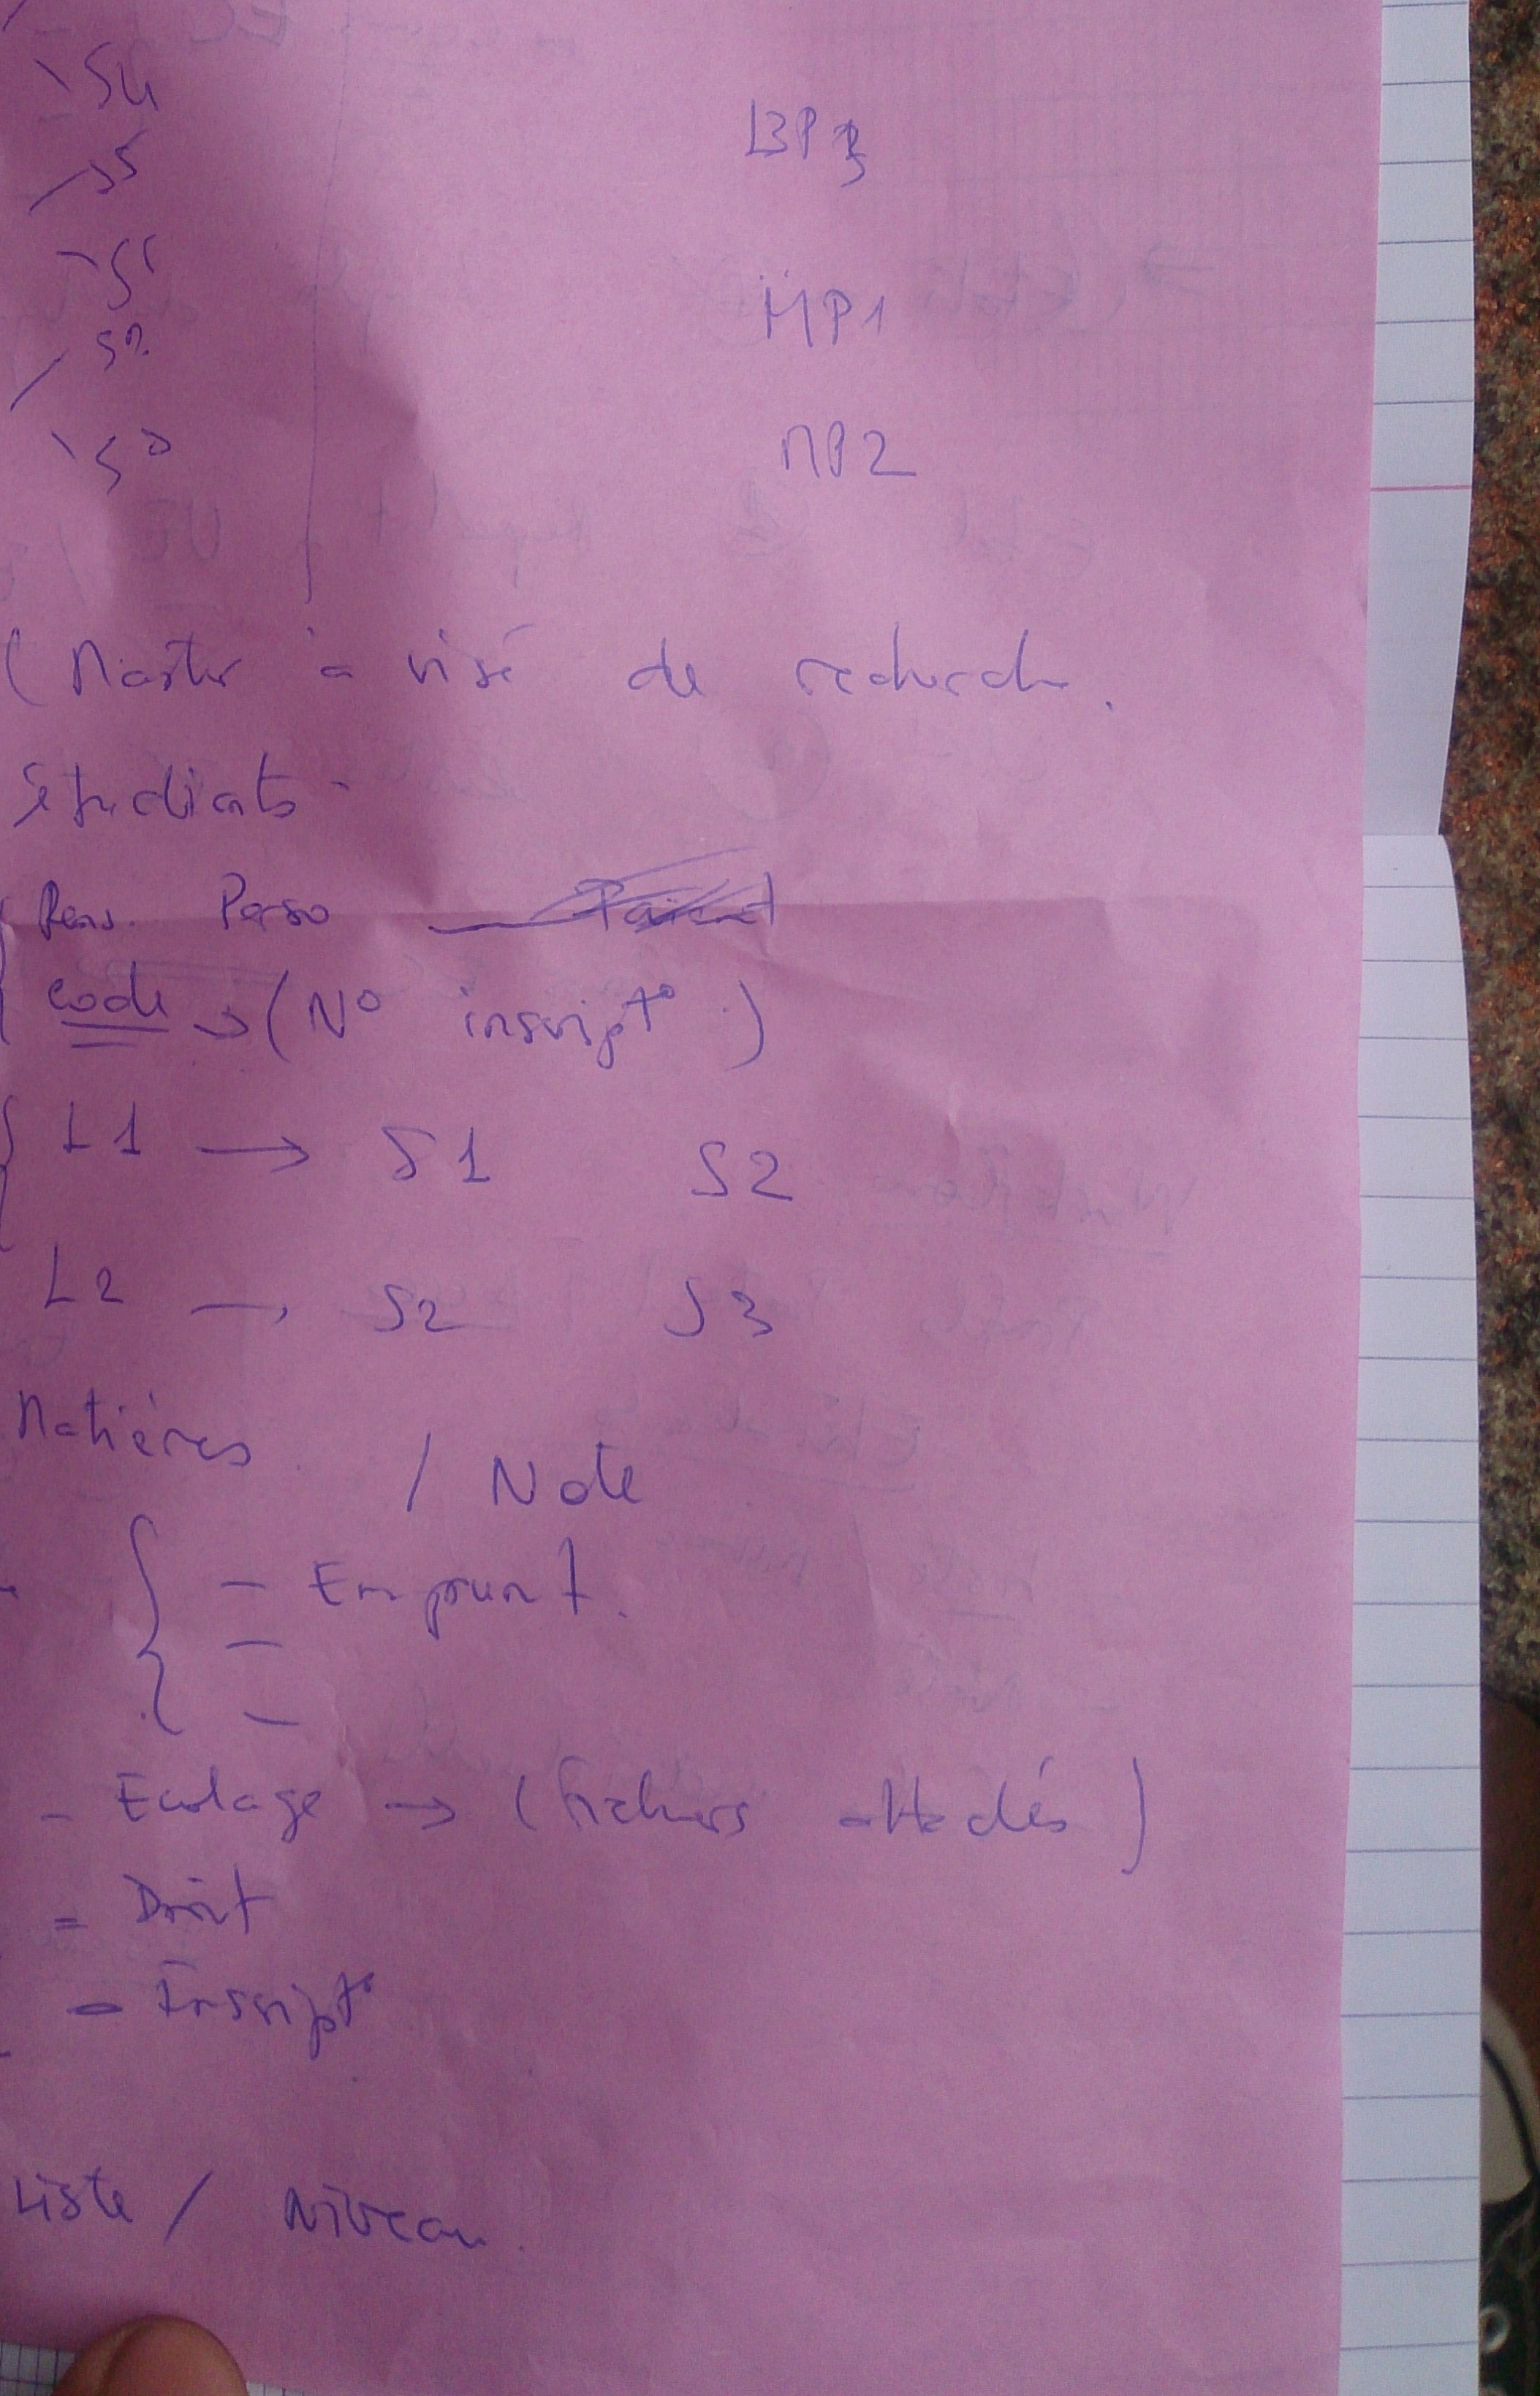 S4
S5
LBP3
MP1
MP2
(Master à visé de recherche.
étudiants -
Rens. Perso
code → (N° inscript°)
L1 → S1 S2
L2 → S2 S3
Matières / Note
{ - Emprunt.
-
-
- Ecolage → (fichiers attachés)
= Droit
- Inscript°
Liste / Niveau.